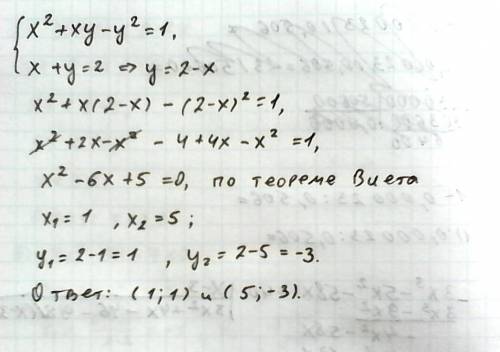 x² + xy - y² = 1,
x + y = 2 ⇒ y = 2 - x
x² + x(2-x) - (2-x)² = 1,
x² + 2x - x² - 4 + 4x - x² = 1,
x² - 6x + 5 = 0, по теореме Виета
x₁ = 1 , x₂ = 5 ;
y₁ = 2-1 = 1 , y₂ = 2-5 = -3.
Ответ: (1; 1) и (5; -3).